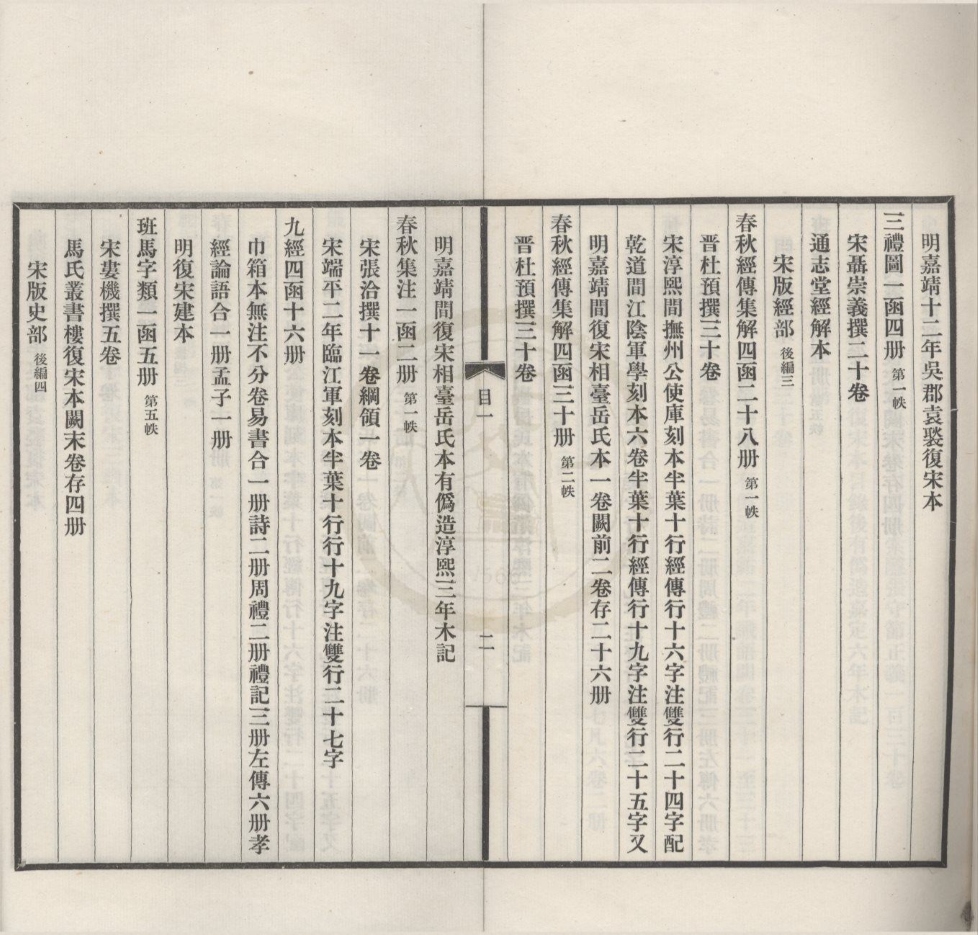 明嘉靖十二年吳郡袁褧復宋本
三禮圖一函四册 第一帙
宋聶崇義撰二十卷
通志堂經解本
宋版經部 後編三
春秋經傳集解四函二十八册 第一帙
晉杜預撰三十卷
宋淳熙間撫州公使庫刻本半葉十行經傳行十六字注雙行二十四字配
乾道間江陰軍學刻本六卷半葉十行經傳行十九字注雙行二十五字又
明嘉靖間復宋相臺岳氏本一卷闕前二卷存二十六册
春秋經傳集解四函三十册 第二帙
晉杜預撰三十卷
目一
二
明嘉靖間復宋相臺岳氏本有僞造淳熙三年木記
春秋集注一函二册 第一帙
宋張洽撰十一卷綱領一卷
宋端平二年臨江軍刻本半葉十行行十九字注雙行二十七字
九經四函十六册
巾箱本無注不分卷易書合一册詩二册周禮二册禮記三册左傳六册孝
經論語合一册孟子一册
明復宋建本
班馬字類一函五册 第五帙
宋婁機撰五卷
馬氏叢書樓復宋本闕末卷存四册
宋版史部 後編四